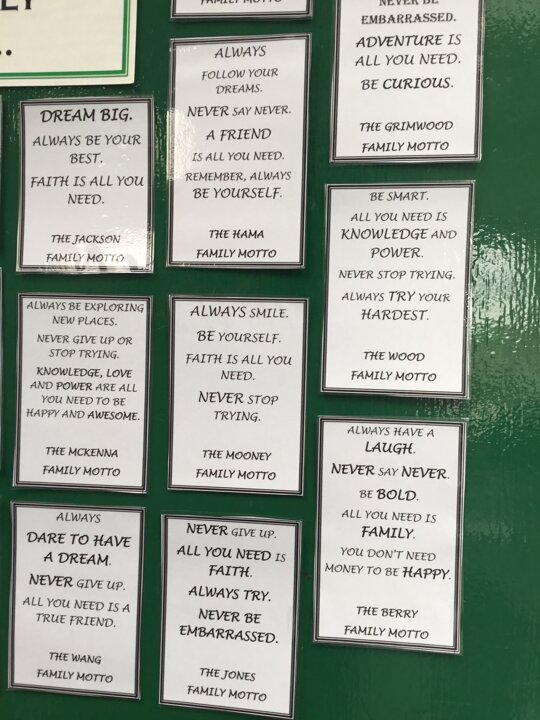 LY
..
FAMILY MOTTO
NEVER BE
EMBARRASSED.
ADVENTURE IS
ALL YOU NEED.
BE CURIOUS.
THE GRIMWOOD
FAMILY MOTTO
ALWAYS
FOLLOW YOUR
DREAMS.
NEVER SAY NEVER.
A FRIEND
IS ALL YOU NEED.
REMEMBER, ALWAYS
BE YOURSELF.
THE HAMA
FAMILY MOTTO
DREAM BIG.
ALWAYS BE YOUR
BEST.
FAITH IS ALL YOU
NEED.
THE JACKSON
FAMILY MOTTO
BE SMART.
ALL YOU NEED IS
KNOWLEDGE AND
POWER.
NEVER STOP TRYING.
ALWAYS TRY YOUR
HARDEST.
THE WOOD
FAMILY MOTTO
ALWAYS BE EXPLORING
NEW PLACES.
NEVER GIVE UP OR
STOP TRYING.
KNOWLEDGE, LOVE
AND POWER ARE ALL
YOU NEED TO BE
HAPPY AND AWESOME.
THE MCKENNA
FAMILY MOTTO
ALWAYS SMILE.
BE YOURSELF.
FAITH IS ALL YOU
NEED.
NEVER STOP
TRYING.
THE MOONEY
FAMILY MOTTO
ALWAYS HAVE A
LAUGH.
NEVER SAY NEVER.
BE BOLD.
ALL YOU NEED IS
FAMILY.
YOU DON'T NEED
MONEY TO BE HAPPY.
THE BERRY
FAMILY MOTTO
ALWAYS
DARE TO HAVE
A DREAM.
NEVER GIVE UP.
ALL YOU NEED IS A
TRUE FRIEND.
THE WANG
FAMILY MOTTO
NEVER GIVE UP.
ALL YOU NEED IS
FAITH.
ALWAYS TRY.
NEVER BE
EMBARRASSED.
THE JONES
FAMILY MOTTO